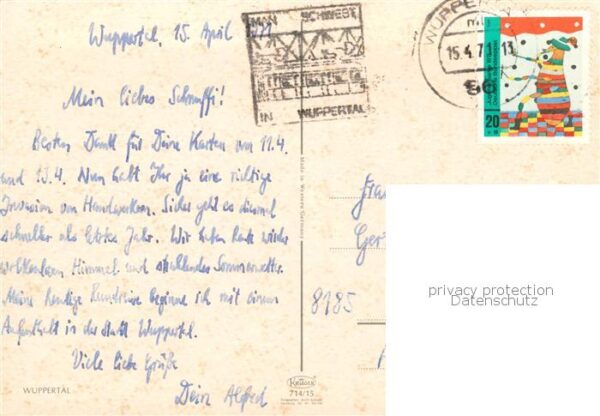 Wuppertal, 15. April 1971
Mein liebes Schnuffi!
Besten Dank für Deine Karten vom 11.4.
und 13.4. Nun habt Ihr ja eine richtige
Invasion von Handwerkern. Sicher geht es diesmal
schneller als letztes Jahr. Wir haben heute wieder
wolkenlosen Himmel und strahlendes Sommerwetter.
Meine heutige Rundreise beginne ich mit einem
Aufenthalt in der Stadt Wuppertal.
Viele liebe Grüße
Dein Alfred
WUPPERTAL
MAN SCHWEBT
IN WUPPERTAL
WUPPER
15.4.71 13
20
Made in Western Germany
Fra
Ger
8185
privacy protection
Datenschutz
Krüger
714/15